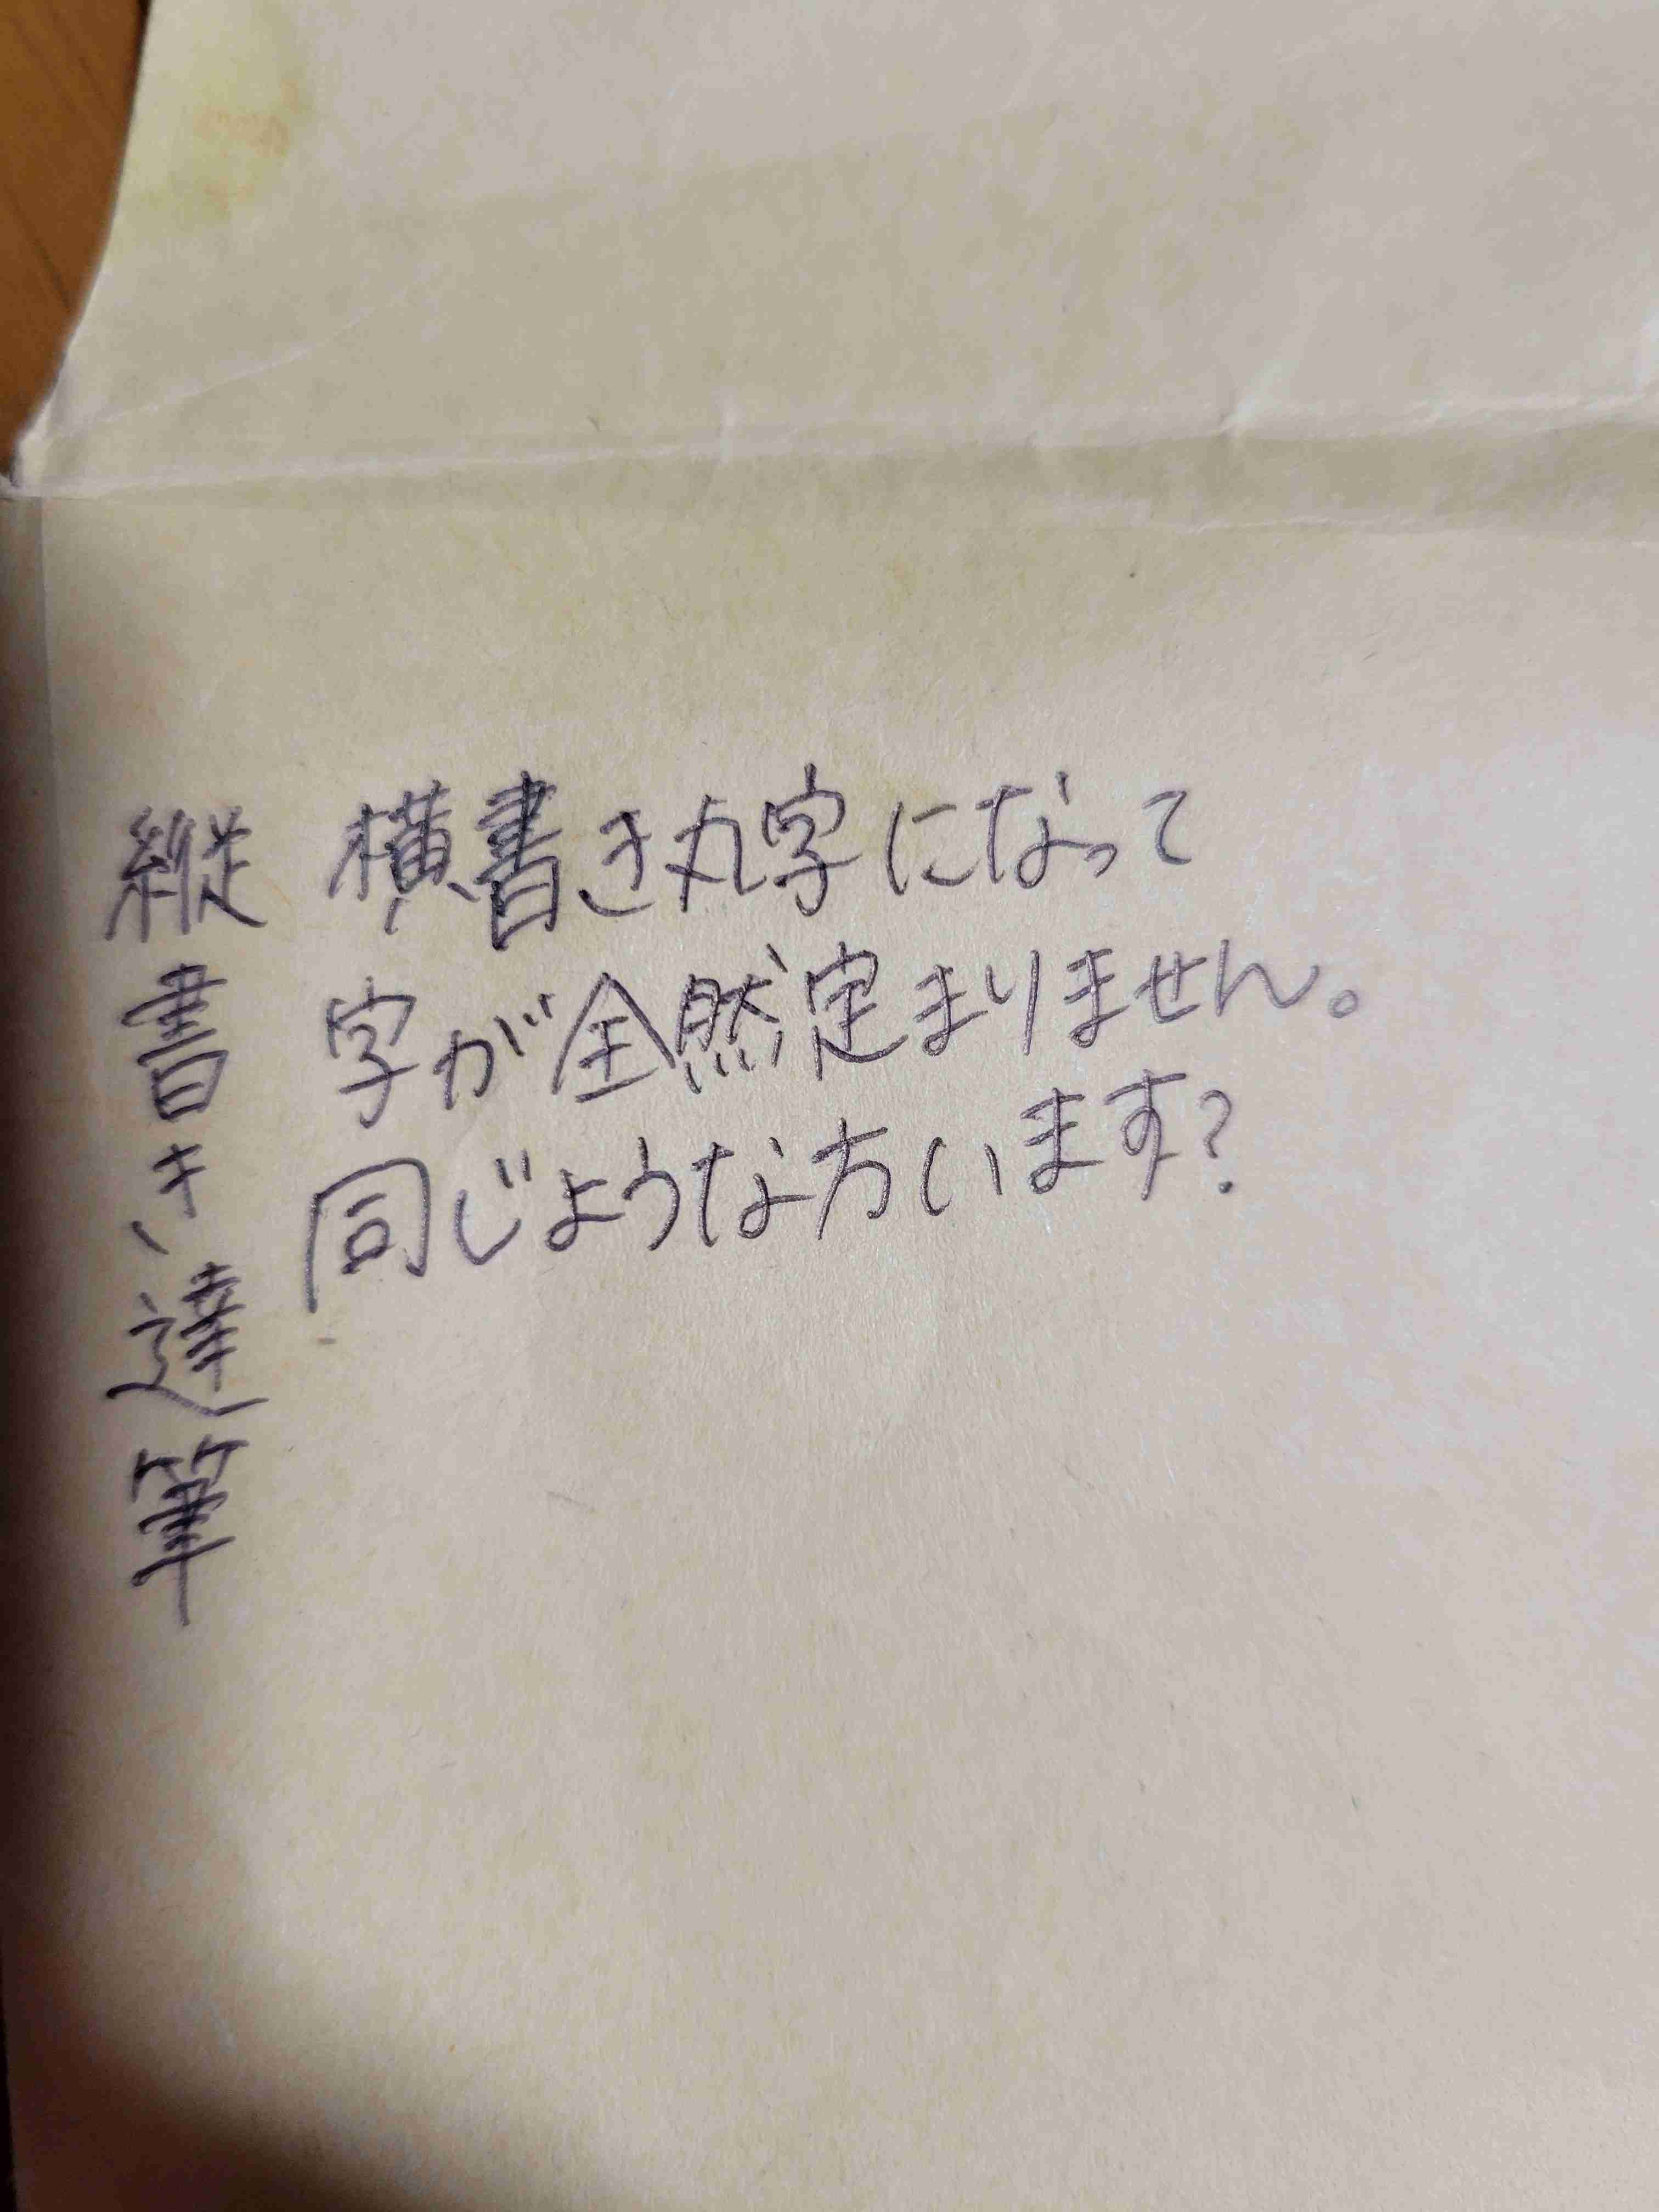 縦書き達筆
横書き丸字になって
字が全然定まりません。
同じような方います?